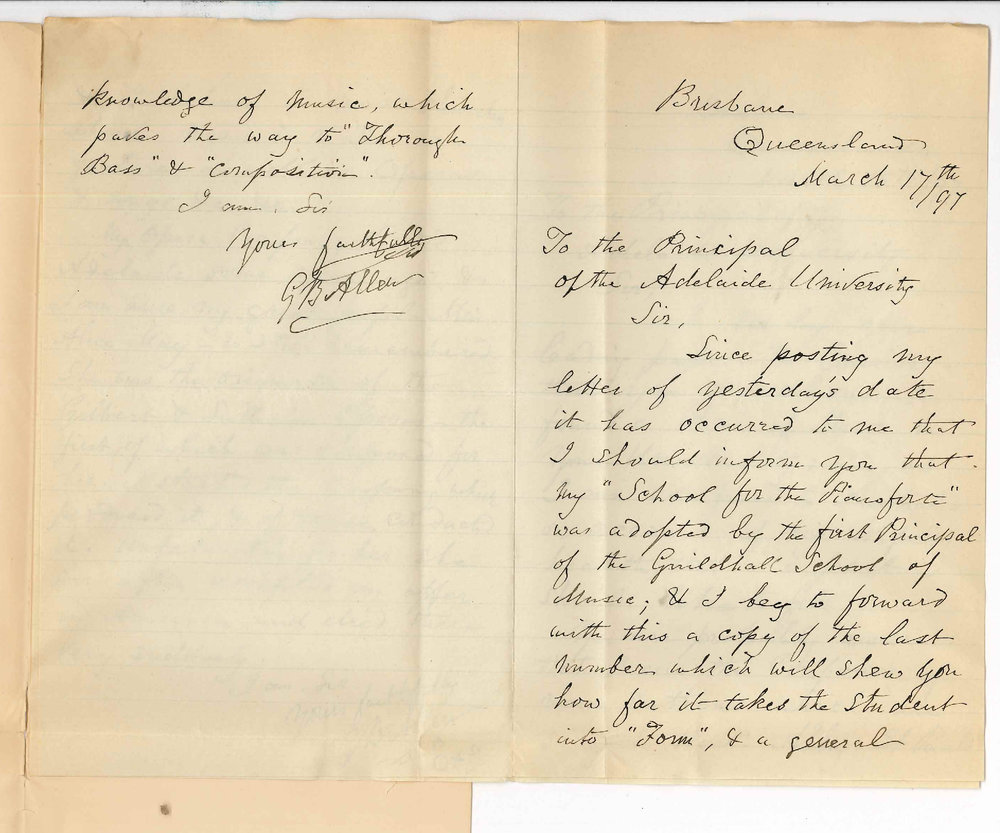 Brisbane
Queensland
March 17th/97
To the Principal
of the Adelaide University
Sir,
Since posting my
letter of yesterday's date
it has occurred to me that
I should inform you that
my "School for the Pianoforte"
was adopted by the first Principal
of the Guildhall School of
Music; & I beg to forward
with this a copy of the last
number which will shew you
how far it takes the student
into "Form", & a general
knowledge of music, which
paves the way to "Thorough
Bass" & "Composition".
I am, Sir
Yours faithfully
G B Allen